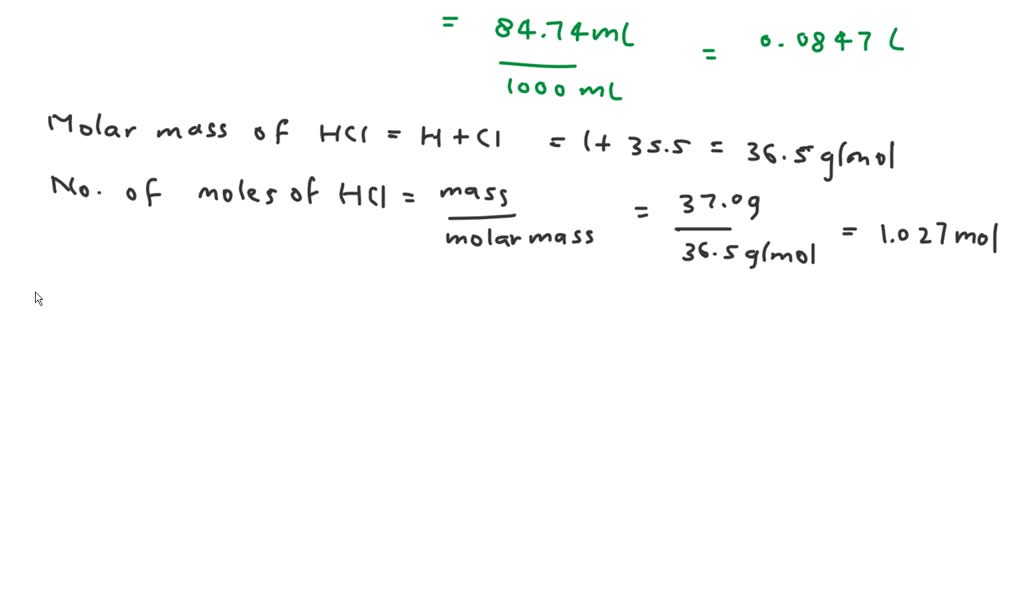 = 84.74 mL / 1000 mL = 0.0847 L
Molar mass of HCl = H + Cl = 1 + 35.5 = 36.5 g/mol
No. of moles of HCl = mass / molar mass = 37.0g / 36.5 g/mol = 1.027 mol